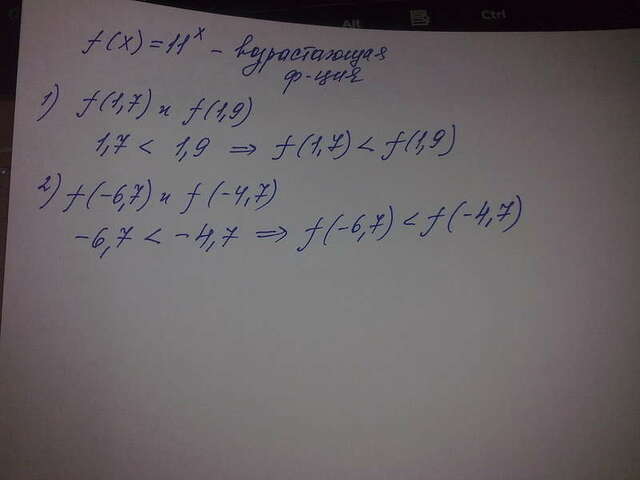 Alt
Ctrl
f(x)=11^x – возрастающая
ф-ция
1) f(1,7) и f(1,9)
1,7 < 1,9 ⇒ f(1,7) < f(1,9)
2) f(-6,7) и f(-4,7)
-6,7 < -4,7 ⇒ f(-6,7) < f(-4,7)